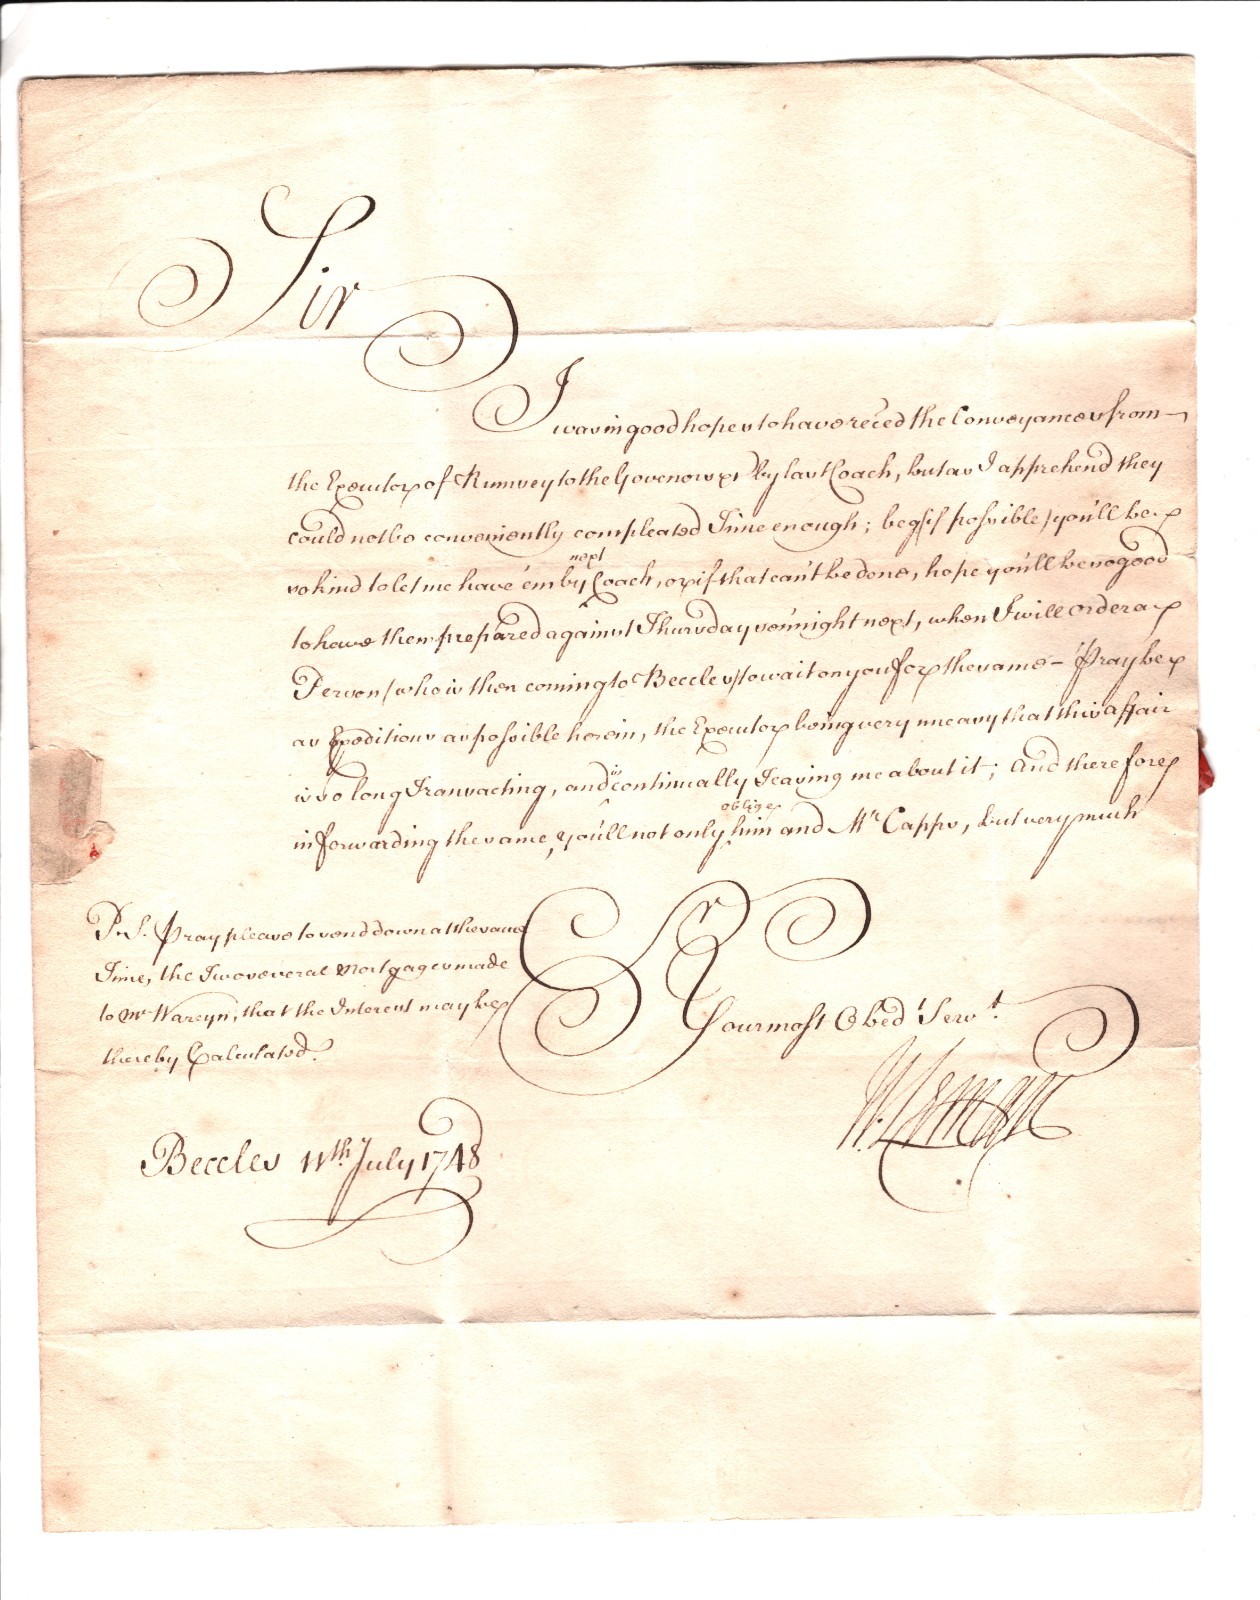 Sir
I was in good hopes to have reced the Conveyances from
the Executor of Rumsey to the Govenors &c by last Coach, but as I apprehend they
could not be conveniently compleated Time enough; beg (if possible) you'll be
next
so kind to let me have 'em by Coach, or if that can't be done, hope you'll be so good
to have them prepared against Thursday sennight next, when I will order a
Person (who is then coming to Beccles) to wait on you for the same – Pray be
as Expeditious as possible herein, the Executor being very uneasy that this affair
is so long Transacting, and is continually Teazing me about it; And therefore
oblige
in forwarding the same, you'll not only him and Mr. Capps, but very much
Sr
P.S. Pray please to send down at the same
Time, the Two several Mortgages made
to Mr Wareyn, that the Interest may be
thereby Calculated.
Your most Obedt Servt.
W. Leman
Beccles 11th. July 1748